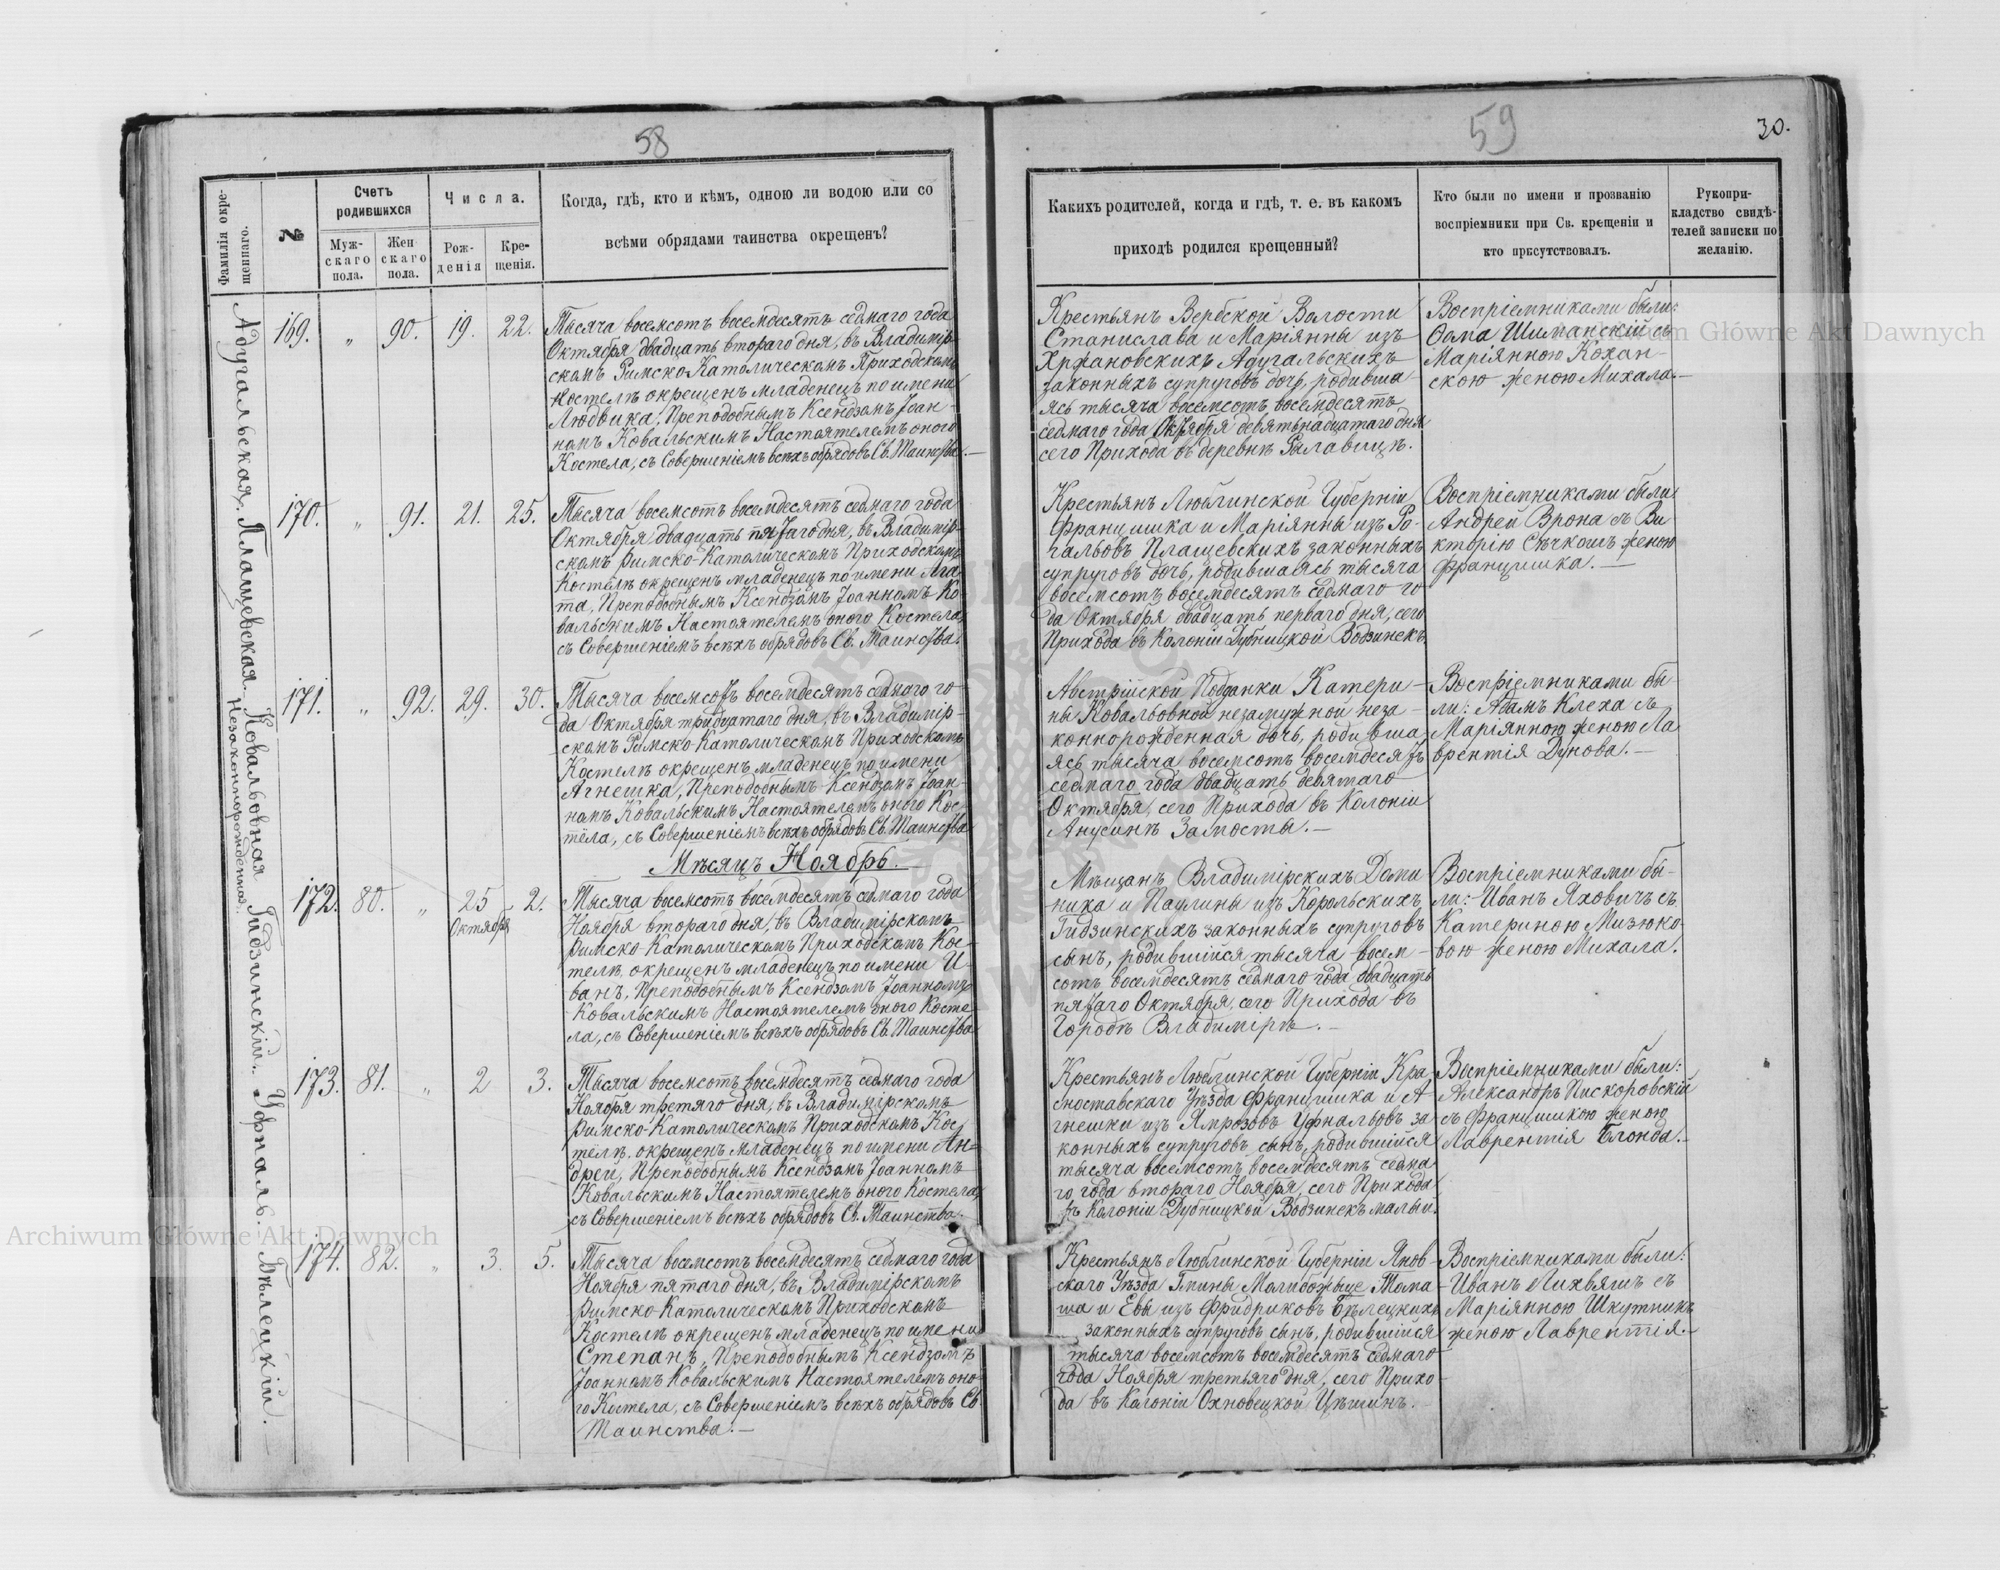 58
Фамилія окре-
щеннаго.
№
Счетъ
родившихся
Муж-
скаго
пола.
Жен
скаго
пола.
Числа.
Рож-
денія
Кре-
щенія.
Когда, гдѣ, кто и кѣмъ, одною ли водою или со
всѣми обрядами таинства окрещенъ?
Адугальская.
169. „ 90. 19. 22.
Тысяча восемсотъ восемдесятъ седмаго года
Октября двадцать втораго дня, въ Владимір-
скомъ Римско-Католическомъ Приходскомъ
Костелѣ окрещенъ младенецъ по имени
Людвика, Преподобнымъ Ксендзомъ Іоан-
номъ Ковальскимъ Настоятелемъ оного
Костела, съ Совершеніемъ всѣхъ обрядовъ Св. Таинства.—
Плашевская.
170. „ 91. 21. 25.
Тысяча восемсотъ восемдесятъ седмаго года
Октября двадцать пятаго дня, въ Владимір-
скомъ Римско-Католическомъ Приходскомъ
Костелѣ окрещенъ младенецъ по имени Ага-
та, Преподобнымъ Ксендзомъ Іоанномъ Ко-
вальскимъ Настоятелемъ оного Костела,
съ Совершеніемъ всѣхъ обрядовъ Св. Таинства.
Ковальовная
Незаконнорожденная.
171. „ 92. 29. 30.
Тысяча восемсотъ восемдесятъ седмаго го-
да Октября тридцатаго дня, въ Владимір-
скомъ Римско-Католическомъ Приходскомъ
Костелѣ окрещенъ младенецъ по имени
Агнешка, Преподобнымъ Ксендзомъ Іоан-
номъ Ковальскимъ Настоятелемъ оного Кос-
тела, съ Совершеніемъ всѣхъ обрядовъ Св. Таинства
Мѣсяцъ Ноябрь.
Гидзинскій.
172. 80. „ 25 2.
Октября
Тысяча восемсотъ восемдесятъ седмаго года
Ноября втораго дня, въ Владимірскомъ
Римско-Католическомъ Приходскомъ Кос-
телѣ, окрещенъ младенецъ по имени И-
ванъ, Преподобнымъ Ксендзомъ Іоанномъ
Ковальскимъ Настоятелемъ оного Косте-
ла, съ Совершеніемъ всѣхъ обрядовъ Св. Таинства
Уфналь.
173. 81. „ 2 3.
Тысяча восемсотъ восемдесятъ седмаго года
Ноября третяго дня, въ Владимірскомъ
Римско-Католическомъ Приходскомъ Кос-
телѣ, окрещенъ младенецъ по имени Ан-
дрей, Преподобнымъ Ксендзомъ Іоанномъ
Ковальскимъ Настоятелемъ оного Костела,
съ Совершеніемъ всѣхъ обрядовъ Св. Таинства.
Бѣлецкій.
174. 82. „ 3. 5.
Тысяча восемсотъ восемдесятъ седмаго года
Ноября пятаго дня, въ Владимірскомъ
Римско-Католическомъ Приходскомъ
Костелѣ окрещенъ младенецъ по имени
Степанъ, Преподобнымъ Ксендзомъ
Іоанномъ Ковальскимъ Настоятелемъ оно-
го Костела, съ Совершеніемъ всѣхъ обрядовъ Св.
Таинства.—
59
30.
Какихъ родителей, когда и гдѣ, т. е. въ какомъ
приходѣ родился крещенный?
Кто были по имени и прозванію
воспріемники при Св. крещеніи и
кто присутствовалъ.
Рукопри-
кладство свидѣ-
телей записки по
желанію.
Крестьянъ Вербской Волости
Станислава и Маріянны изъ
Хржановскихъ Адугальскихъ
законныхъ супруговъ дочь, родивша-
ясь тысяча восемсотъ восемдесятъ
седмаго года Октября девятьнадцатаго дня
сего Прихода въ деревнѣ Рылавицѣ.
Воспріемниками были:
Ѳома Шиманскій съ
Маріянною Кохан-
скою женою Михала.—
Крестьянъ Люблинской Губерніи
Францишка и Маріянны изъ Ро-
гальовъ Плашевскихъ законныхъ
супруговъ дочь, родившаясь тысяча
восемсотъ восемдесятъ седмаго го-
да Октября двадцать перваго дня, сего
Прихода въ Колоніи Дубницкой Водзинекъ.
Воспріемниками были
Андрей Врона съ Ви-
кторію Сѣчкошъ женою
Францишка.—
Австрійской Подданки Катери-
ны Ковальовной незамужной неза-
коннорожденная дочь, родивша
ясь тысяча восемсотъ восемдесятъ
седмаго года двадцать девятаго
Октября, сего Прихода въ Колоніи
Анусинѣ Замосты.—
Воспріемниками бы-
ли: Адамъ Клеха съ
Маріянною женою Ла
врентія Дунова.—
Мѣщанъ Владимірскихъ Доми
ника и Паулины изъ Корольскихъ
Гидзинскихъ законныхъ супруговъ
сынъ, родившійся тысяча восем-
сотъ восемдесятъ седмаго года двадцать
пятаго Октября, сего Прихода въ
Городѣ Владимірѣ.—
Воспріемниками бы-
ли: Иванъ Яховичъ съ
Катериною Мизюко-
вою женою Михала.
Крестьянъ Люблинской Губерніи Кра-
сноставскаго Уѣзда Францишка и А-
гнешки изъ Амрозовъ Уфнальовъ за
конныхъ супруговъ сынъ, родившійся
тысяча восемсотъ восемдесятъ седма
го года втораго Ноября, сего Прихода
въ Колоніи Дубницкой Водзинекъ малый.
Воспріемниками были:
Александръ Пискоровскій
съ Францишкою женою
Лаврентія Блонда.—
Крестьянъ Люблинской Губерніи Янов-
скаго Уѣзда Гмины Могибожьце Тома
ша и Евы изъ Фридриковъ Бѣлецкихъ
законныхъ супруговъ сынъ, родившійся
тысяча восемсотъ восемдесятъ седмаго
года Ноября третьяго дня, сего Прихо-
да въ Колоніи Охновецкой Цѣшинъ.
Воспріемниками были:
Иванъ Лихвяшъ съ
Маріянною Шкутникъ
женою Лаврентія.—
Archiwum Główne Akt Dawnych
Archiwum Główne Akt Dawnych